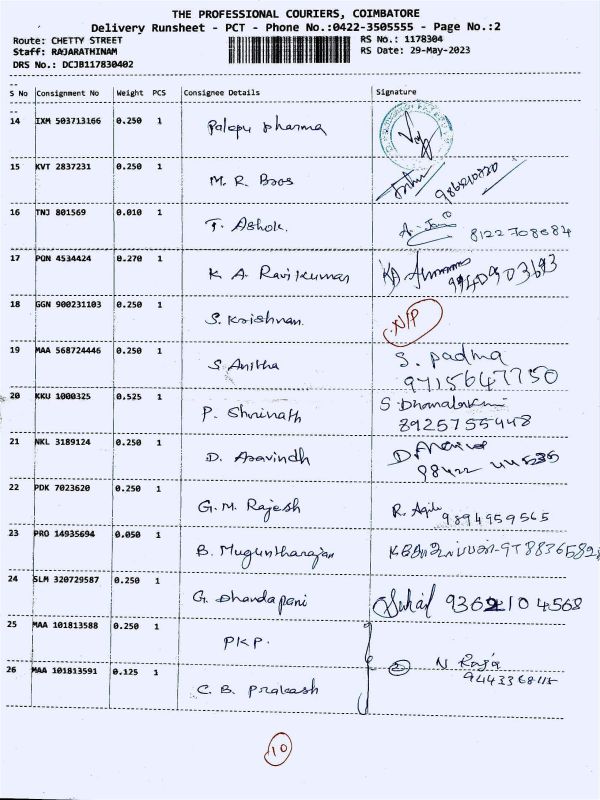 THE PROFESSIONAL COURIERS, COIMBATORE
Delivery Runsheet - PCT - Phone No.:0422-3505555 - Page No.:2
Route: CHETTY STREET RS No.: 1178304
Staff: RAJARATHINAM RS Date: 29-May-2023
DRS No.: DCJB117830402
S No Consignment No Weight PCS Consignee Details Signature
14 IXM 503713166 0.250 1 Palepu Sharma
15 KVT 2837231 0.250 1 M. R. Boos
16 TNJ 801569 0.010 1 T. Ashok.
8122708684
17 PQN 4534424 0.270 1 K A Ravikumar
18 GGN 900231103 0.250 1 S. Krishnan. N/P
19 MAA 568724446 0.250 1 S Anitha S. Padma
9715647750
20 KKU 1000325 0.525 1 P. Shrinath
8925755448
21 NKL 3189124 0.250 1 D. Aravindh
22 PDK 7023620 0.250 1 G. M. Rajesh R.
9894959565
23 PRO 14935694 0.050 1 B. Muguntharajan
24 SLM 320729587 0.250 1 G. Dhandapani 9362104568
25 MAA 101813588 0.250 1 PKP.
26 MAA 101813591 0.125 1 C. B. Prakash 2 N Raja
10